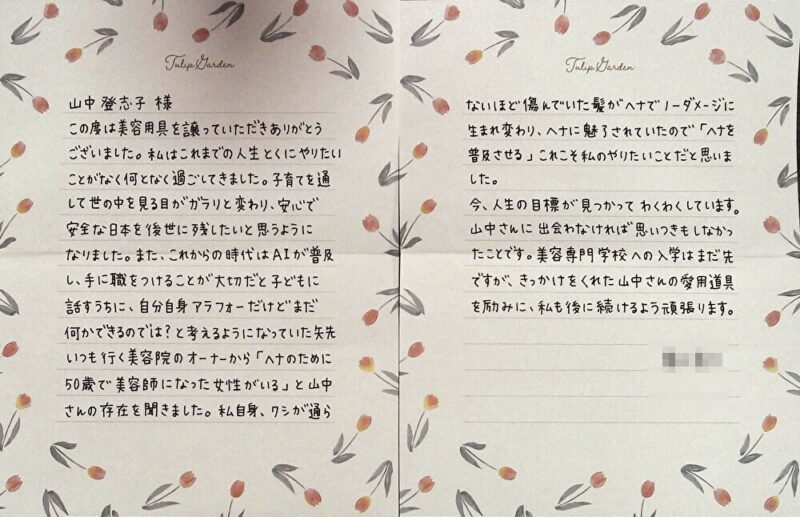 Tulip Garden
山中 登志子 様
この度は美容用具を譲っていただきありがとう
ございました。私はこれまでの人生とくにやりたい
ことがなく何となく過ごしてきました。子育てを通
して世の中を見る目がガラリと変わり、安心で
安全な日本を後世に残したいと思うように
なりました。また、これからの時代はAIが普及
し、手に職をつけることが大切だと子どもに
話すうちに、自分自身アラフォーだけどまだ
何かできるのでは?と考えるようになっていた矢先
いつも行く美容院のオーナーから「ヘナのために
50歳で美容師になった女性がいる」と山中
さんの存在を聞きました。私自身、クシが通ら
Tulip Garden
ないほど傷んでいた髪がヘナでノーダメージに
生まれ変わり、ヘナに魅了されていたので「ヘナを
普及させる」これこそ私のやりたいことだと思いま
した。
今、人生の目標が見つかってわくわくしています。
山中さんに出会わなければ思いつきもしなかっ
たことです。美容専門学校への入学はまだ先
ですが、きっかけをくれた山中さんの愛用道具
を励みに、私も後に続けるよう頑張ります。